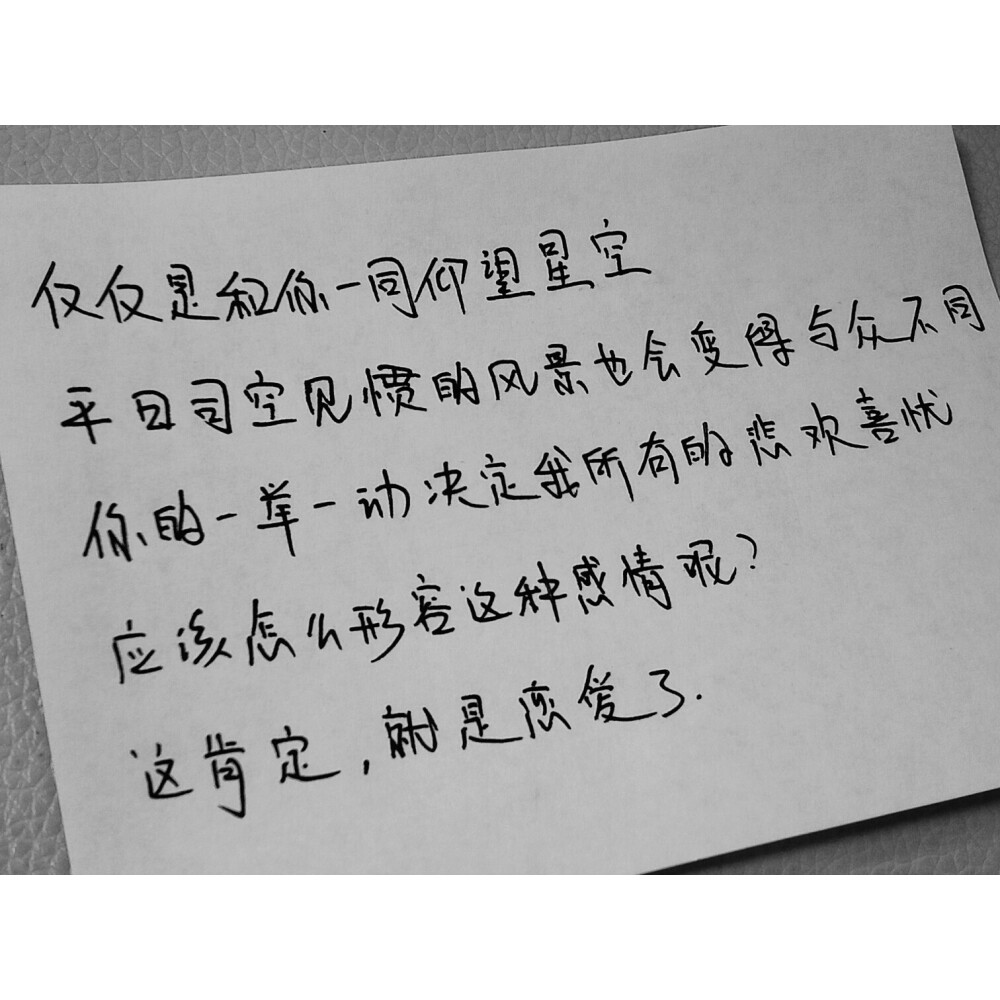 仅仅是和你一同仰望星空
平日司空见惯的风景也会变得与众不同
你的一举一动决定我所有的悲欢喜忧
应该怎么形容这种感情呢?
这肯定,就是恋爱了.